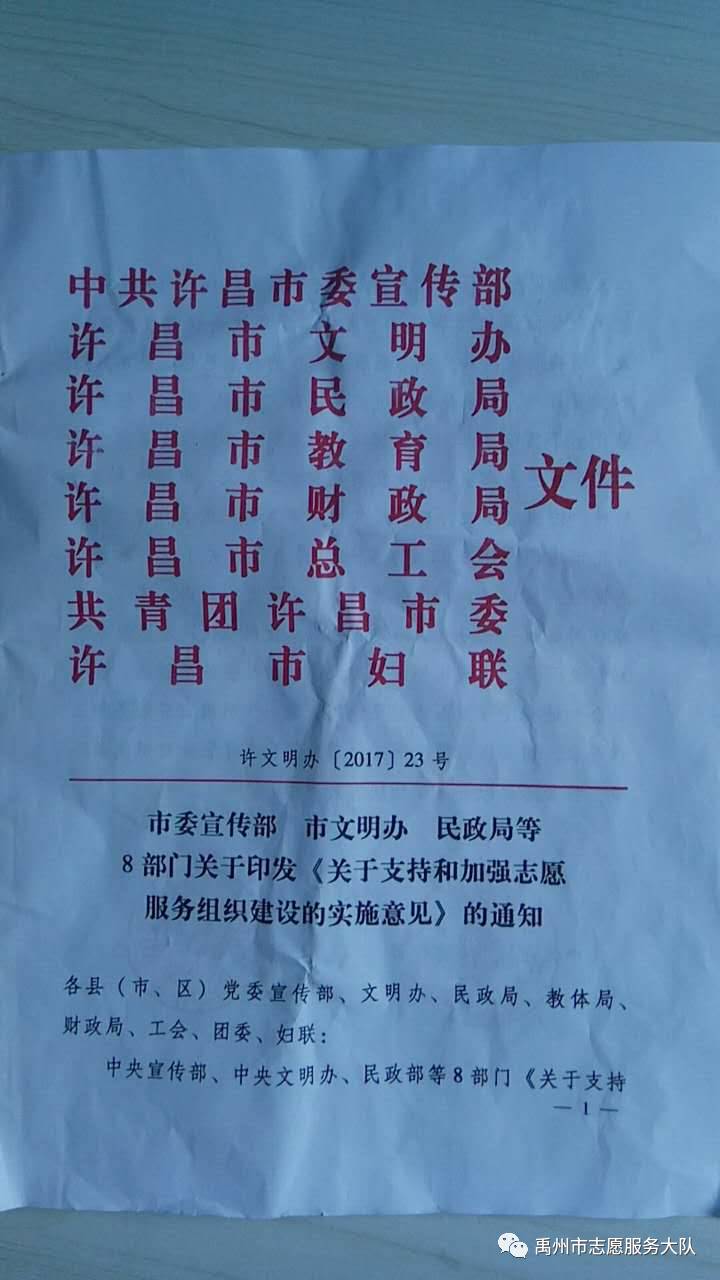 中共许昌市委宣传部
许昌市文明办
许昌市民政局
许昌市教育局
许昌市财政局
许昌市总工会
共青团许昌市委
许昌市妇联
文件
许文明办〔2017〕23号
市委宣传部 市文明办 民政局等
8部门关于印发《关于支持和加强志愿
服务组织建设的实施意见》的通知
各县（市、区）党委宣传部、文明办、民政局、教体局、
财政局、工会、团委、妇联：
中央宣传部、中央文明办、民政部等8部门《关于支持
— 1 —
禹州市志愿服务大队